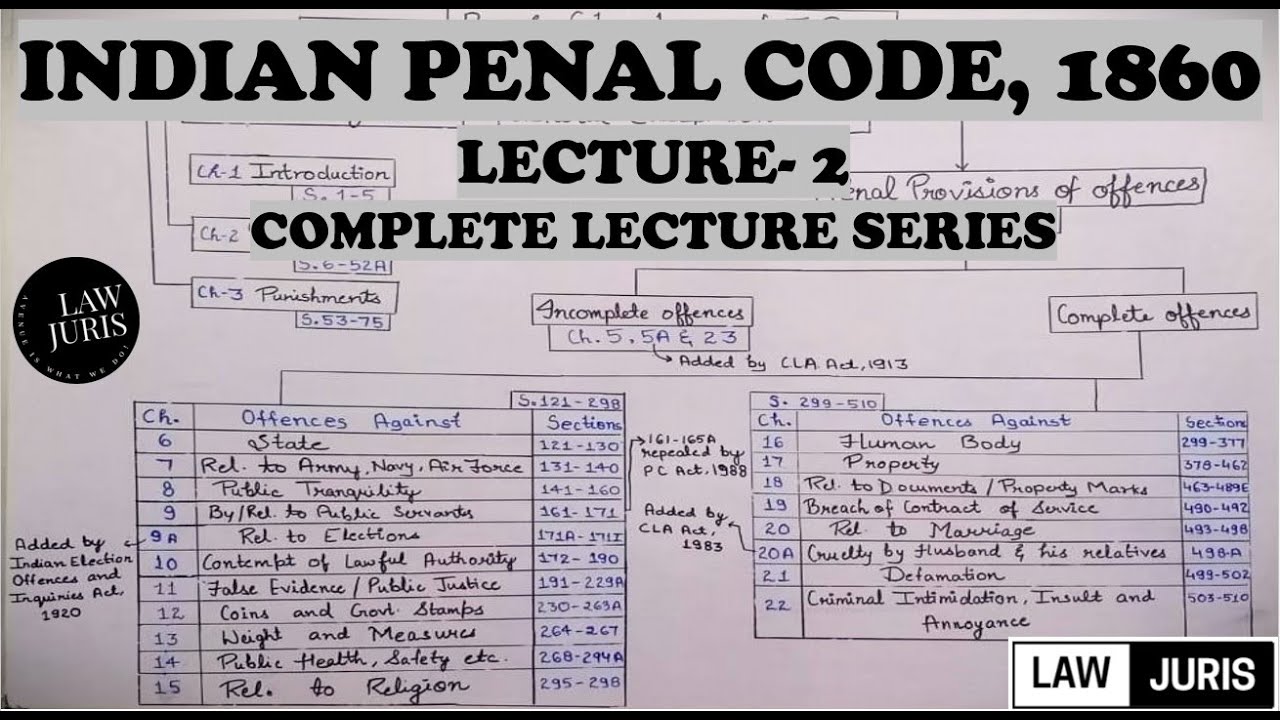 INDIAN PENAL CODE, 1860
LECTURE- 2
COMPLETE LECTURE SERIES
Ch-1 Introduction
S. 1-5
Penal Provisions of offences
Ch-2
S.6-52A
Ch-3 Punishments
S.53-75
LAW
JURIS
AVENUE IS WHAT WE DO!
Incomplete offences
Ch. 5, 5A & 23
Added by CLA Act, 1913
Complete offences
S.121-298
Ch. Offences Against Sections
6 State 121-130
7 Rel. to Army, Navy, Air Force 131-140
8 Public Tranquility 141-160
9 By/Rel. to Public Servants 161-171
9A Rel. to Elections 171A-171I
10 Contempt of Lawful Authority 172-190
11 False Evidence / Public Justice 191-229A
12 Coins and Govt. Stamps 230-263A
13 Weight and Measures 264-267
14 Public Health, Safety etc. 268-294A
15 Rel. to Religion 295-298
Added by
Indian Election
Offences and
Inquiries Act,
1920
161-165A
repealed by
PC Act, 1988
Added by
CLA Act,
1983
S. 299-510
Ch. Offences Against Section
16 Human Body 299-377
17 Property 378-462
18 Rel. to Documents / Property Marks 463-489E
19 Breach of Contract of Service 490-492
20 Rel. to Marriage 493-498
20A Cruelty by Husband & his relatives 498-A
21 Defamation 499-502
22 Criminal Intimidation, Insult and 503-510
Annoyance
LAW JURIS